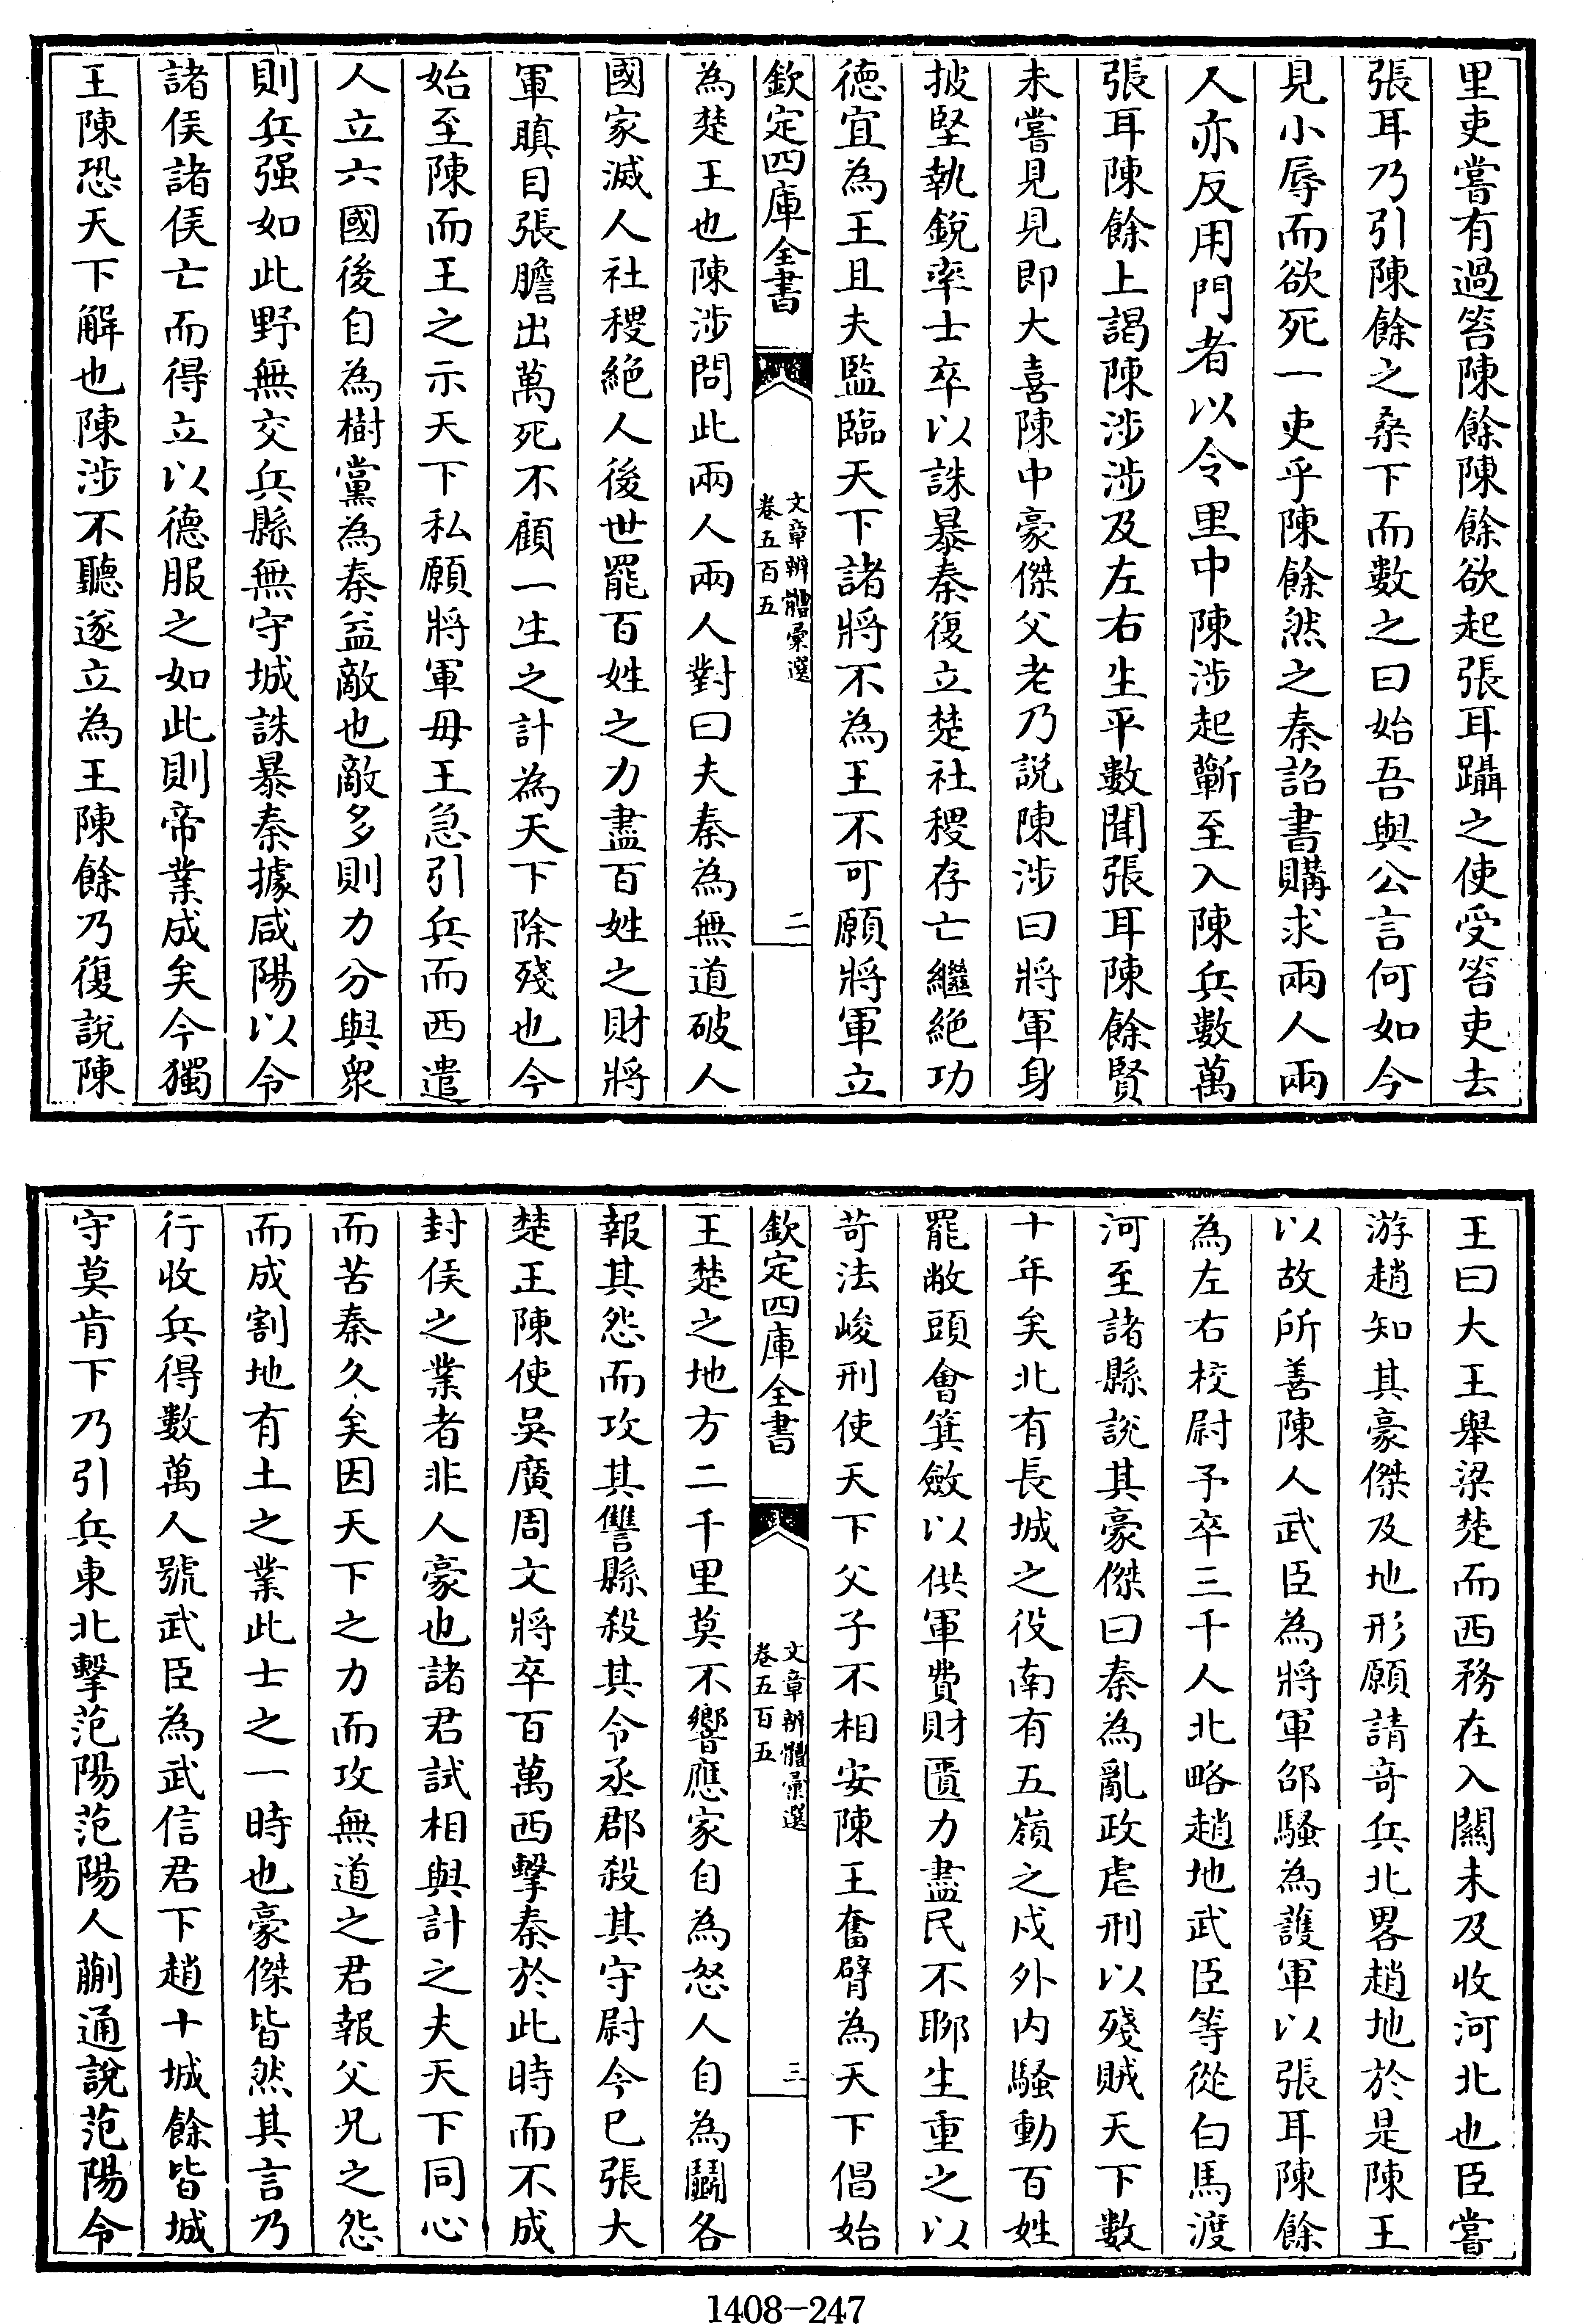 里吏嘗有過笞陳餘陳餘欲起張耳躡之使受笞吏去
張耳乃引陳餘之桑下而數之曰始吾與公言何如今
見小辱而欲死一吏乎陳餘然之秦詔書購求兩人兩
人亦反用門者以令里中陳涉起蘄至入陳兵數萬
張耳陳餘上謁陳涉涉及左右生平數聞張耳陳餘賢
未嘗見見即大喜陳中豪傑父老乃說陳涉曰將軍身
披堅執銳率士卒以誅暴秦復立楚社稷存亡繼絶功
德宜為王且夫監臨天下諸將不為王不可願將軍立
欽定四庫全書
文章辨體彙選
卷五百五
二
為楚王也陳涉問此兩人兩人對曰夫秦為無道破人
國家滅人社稷絶人後世罷百姓之力盡百姓之財將
軍瞋目張膽出萬死不顧一生之計為天下除殘也今
始至陳而王之示天下私願將軍毋王急引兵而西遣
人立六國後自為樹黨為秦益敵也敵多則力分與衆
則兵强如此野無交兵縣無守城誅暴秦據咸陽以令
諸侯諸侯亡而得立以德服之如此則帝業成矣今獨
王陳恐天下解也陳涉不聽遂立為王陳餘乃復說陳
王曰大王舉梁楚而西務在入關未及收河北也臣嘗
游趙知其豪傑及地形願請奇兵北畧趙地於是陳王
以故所善陳人武臣為將軍邵騷為護軍以張耳陳餘
為左右校尉予卒三千人北略趙地武臣等從白馬渡
河至諸縣說其豪傑曰秦為亂政虐刑以殘賊天下數
十年矣北有長城之役南有五嶺之戍外内騷動百姓
罷敝頭會箕斂以供軍費財匱力盡民不聊生重之以
苛法峻刑使天下父子不相安陳王奮臂為天下倡始
欽定四庫全書
文章辨體彙選
卷五百五
三
王楚之地方二千里莫不響應家自為怒人自為鬭各
報其怨而攻其讐縣殺其令丞郡殺其守尉今已張大
楚王陳使吳廣周文將卒百萬西擊秦於此時而不成
封侯之業者非人豪也諸君試相與計之夫天下同心
而苦秦久矣因天下之力而攻無道之君報父兄之怨
而成割地有土之業此士之一時也豪傑皆然其言乃
行收兵得數萬人號武臣為武信君下趙十城餘皆城
守莫肯下乃引兵東北擊范陽范陽人蒯通說范陽令
1408-247